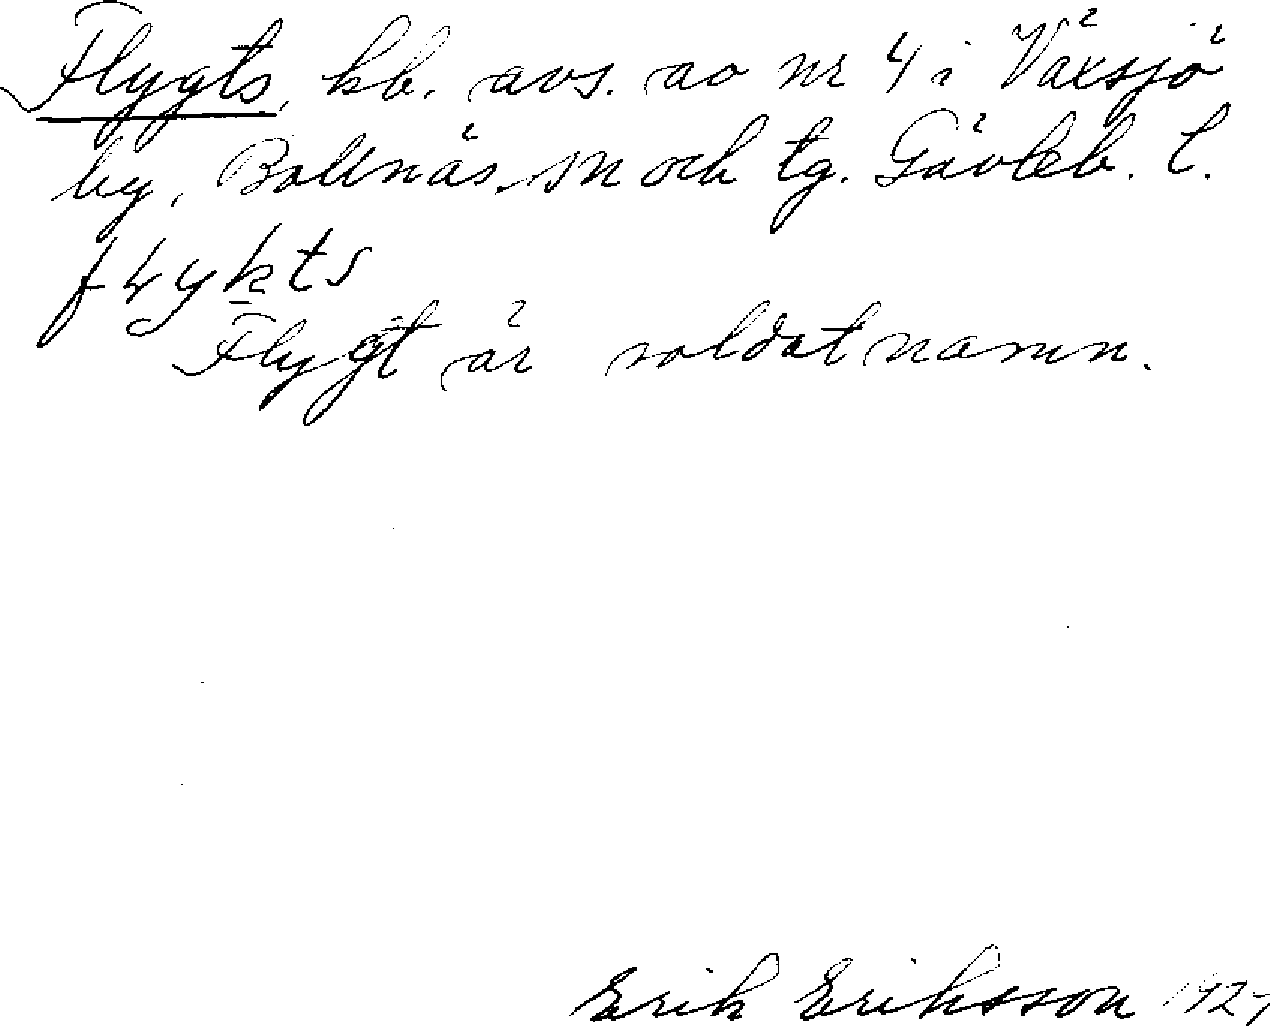 Flygts, hb. avs. av nr 4 i Växsjö
by, Bollnäs sn och tg. Gävleb. l.
flykts
Flygt är soldatnamn.
Erik Eriksson 1927